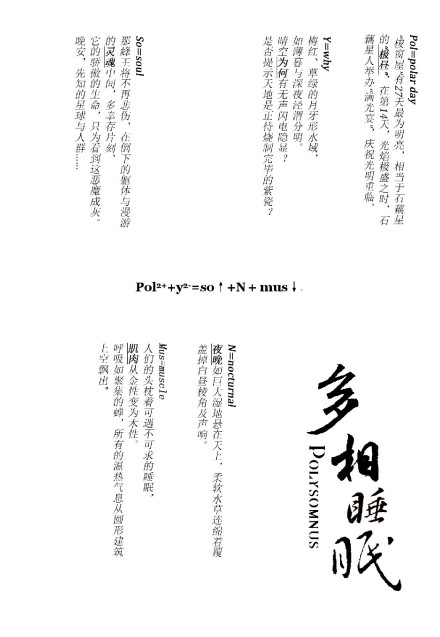 Pol=polar day
"极窗屋"有27天最为明亮，相当于石藕星
的"极昼"，在第14天，光焰极盛之时，石
藕星人举办"满光宴"，庆祝光明重临。
Y=why
梅红、草绿的月牙形水域，
如薄暮与深夜泾渭分明。
晴空为何有无声闪电隐显？
是否提示天地是正待烧制完毕的紫瓷？
So=soul
那蜂王将不再悲伤，在倒下的躯体与漫游
的灵魂中间，多幸存片刻、
它的骄傲的生命，只为看到这恶魔成灰。
晚安，先知的星球与人群……
Pol²⁺+y²⁻=so↑+N+mus↓
多相睡眠
POLYSOMNUS
N=nocturnal
夜晚如巨大湿地悬在天上，柔软水草连绵着覆
盖掉白昼棱角及声响。
Mus=muscle
人们的头枕着可遇不可求的睡眠，
肌肉从金性变为木性。
呼吸如聚集的蝉，所有的濕热气息从圆形建筑
上空飘出。